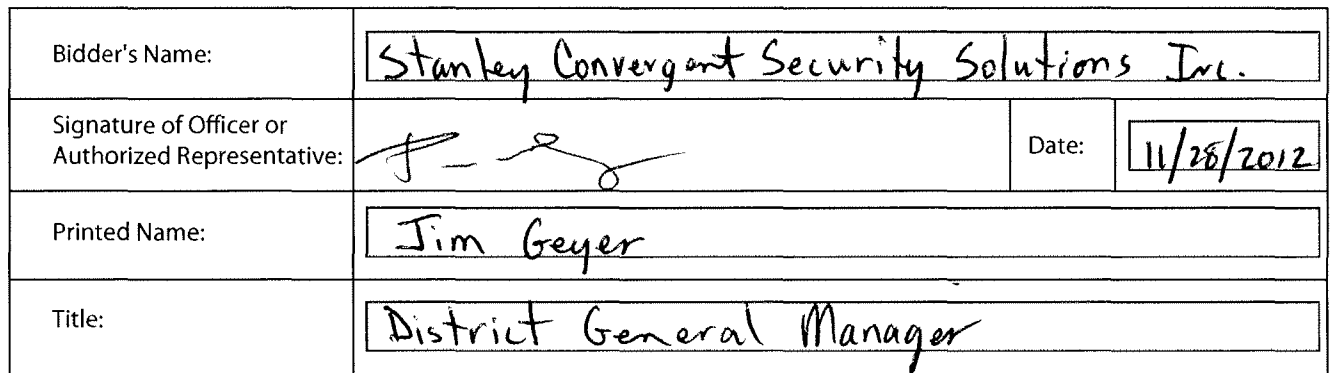 Bidder's Name: Stanley Convergent Security Solutions Inc.
Signature of Officer or
Authorized Representative:
Date: 11/28/2012
Printed Name: Jim Geyer
Title: District General Manager